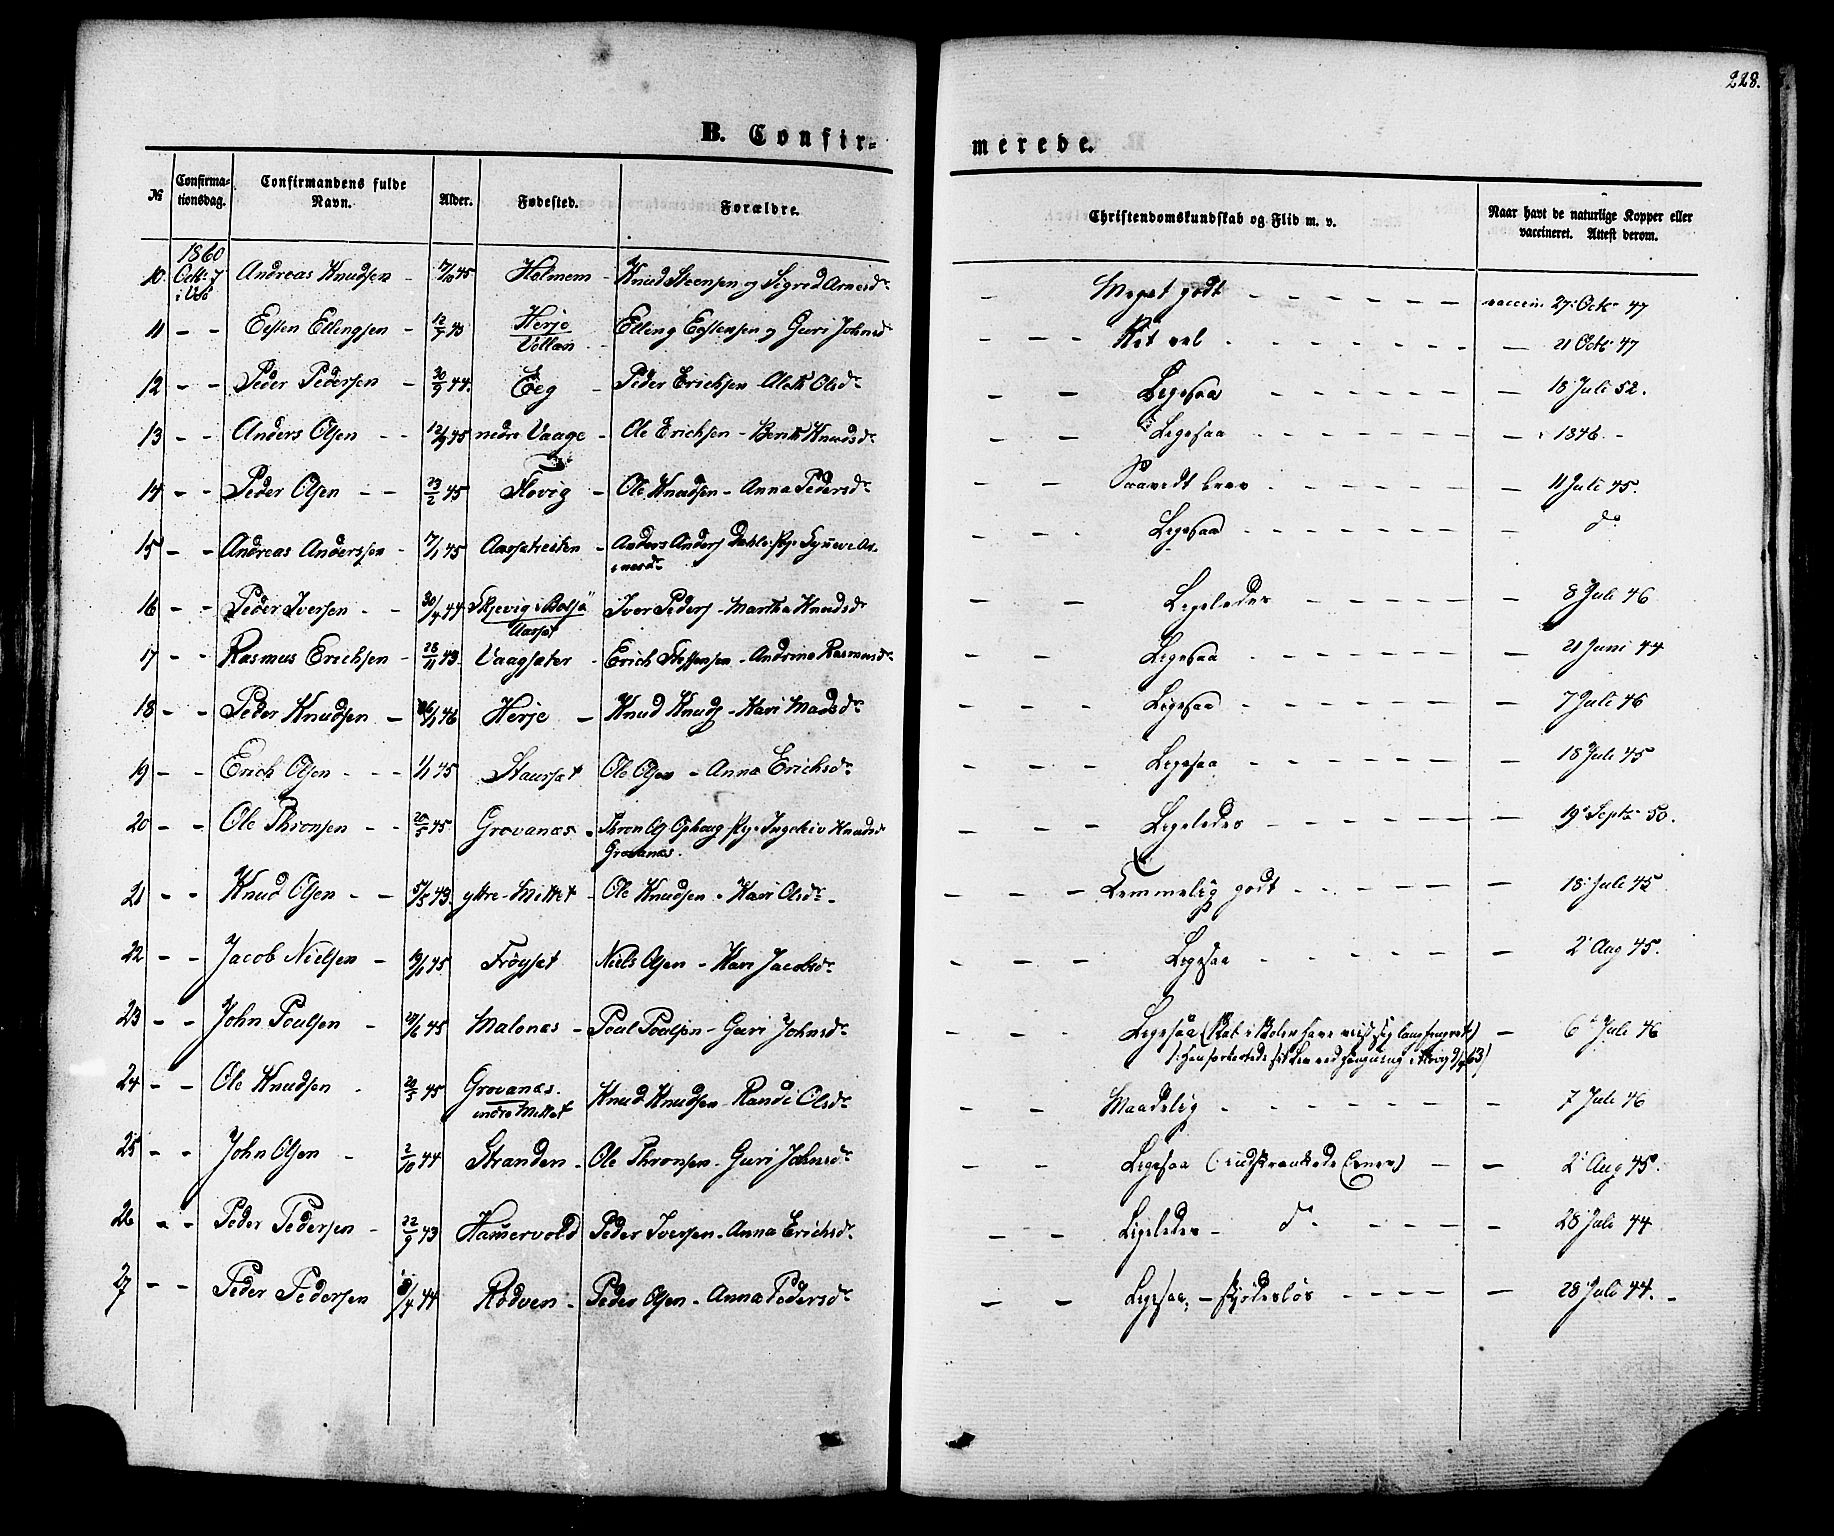 228.
B. Confir-
merede.
№
Confirma-
tionsdag.
Confirmandens fulde
Navn.
Alder.
Fødested.
Forældre.
Christendomskundskab og Flid m. v.
Naar havt de naturlige Kopper eller
vaccineret. Attest derom.
1860
10. Octb: 7 Andreas Knudsen - 45 Holmem - Knud Steensen og Sigrid Arnesd. - Meget godt - - - - - - vaccin. 27: Octbr 47
i Vø
11 - - Esten Ellingsen - Herje Elling Estensen og Guri Johnsd - - - Ret vel - - - - - - - 21 Octb 47
Vollan
12 - - Peder Pedersen - 30/9 44. Eeg - Peder Erichsen - Olsd. - - Ligesaa - - - - - - 18 Juli 52.
13 - - Anders Olsen - - 12/9 45 nedre Vaage - Ole Erichsen - Berit Knudsd. - - Ligesaa - - - - - - 1846. -
14 - - Peder Olsen - - 23/2 45 Flovig - Ole Knudsen - Anna Pedersd. - - - - - - - - 11 Juli 45.
15 - - Andreas Anderssen - 45 Aarsetreiten - Anders Anders - - Ligesaa - - - - - - do
16 - - Peder Iversen - - 30/4 44 Skjevig i Bolsø Iver Peders - Martha Knudsd. - - Ligeledes - - - - - - 8 Juli 46
Aarset
17 - - Rasmus Erichsen - 28/11 43 Vaagsæter - Erich Steffensen - Andrine Rasmusd. - - Ligesaa - - - - - - 21 Juni 44
18 - - Peder Knudsen - 46 Herje - Knud Knuds - Kari Madsd. - - - Ligesaa - - - - - - 7 Juli 46
19 - - Erich Olsen - - - 1/1 45 Staurset Ole Olsen - Anna Ericksd. - - - Ligesaa - - - - - - 18 Juli 45
20 - - Ole Thronsen - - 20/5 45 Grovanæs - Thron Ols Ophoug Ingebor Knudsd - - - Ligeledes - - - - - - 19 Septbr 50.
Grovanæs.
21 - - Knud Olsen - - 5/5 43. ytre-Mittet - Ole Knudsen - Kari Olsd. - - - - Temmelig godt - - - - - - 18: Juli 45
22 - - Jacob Nielsen - 45 Frøyset Niels Olsen - Kari Jacobsd. - - - Ligesaa - - - - - - 2 Aug 45.
23 - - John Poulsen - 45 Malonæs - Poul Poulsen - Guri Johnsd. - - Ligesaa - 6 Juli 46
24 - - Ole Knudsen - 45 Grovanæs. Knud Knudsen - Randi Olsd. - - Maadelig - - - - - - 7 Juli 46
indre Mittet
25 - - John Olsen - 2/10 44 Stranden - Ole Thronsen - Guri Johnsd. - - Ligesaa (: indskrænkede Evner) - - 2 Aug 45.
26 - - Peder Pedersen - 22/9 43 Hamervold Peder Iversen - Anna Erichsd. - - Ligeledes - do - - - - - 28 Juli 44
27 - - Peder Pedersen 44 Rødven - Peder Olsen - Anna Pedersd. - - Ligesaa; - skjødesløs - - - - - 28 Juli 44. -